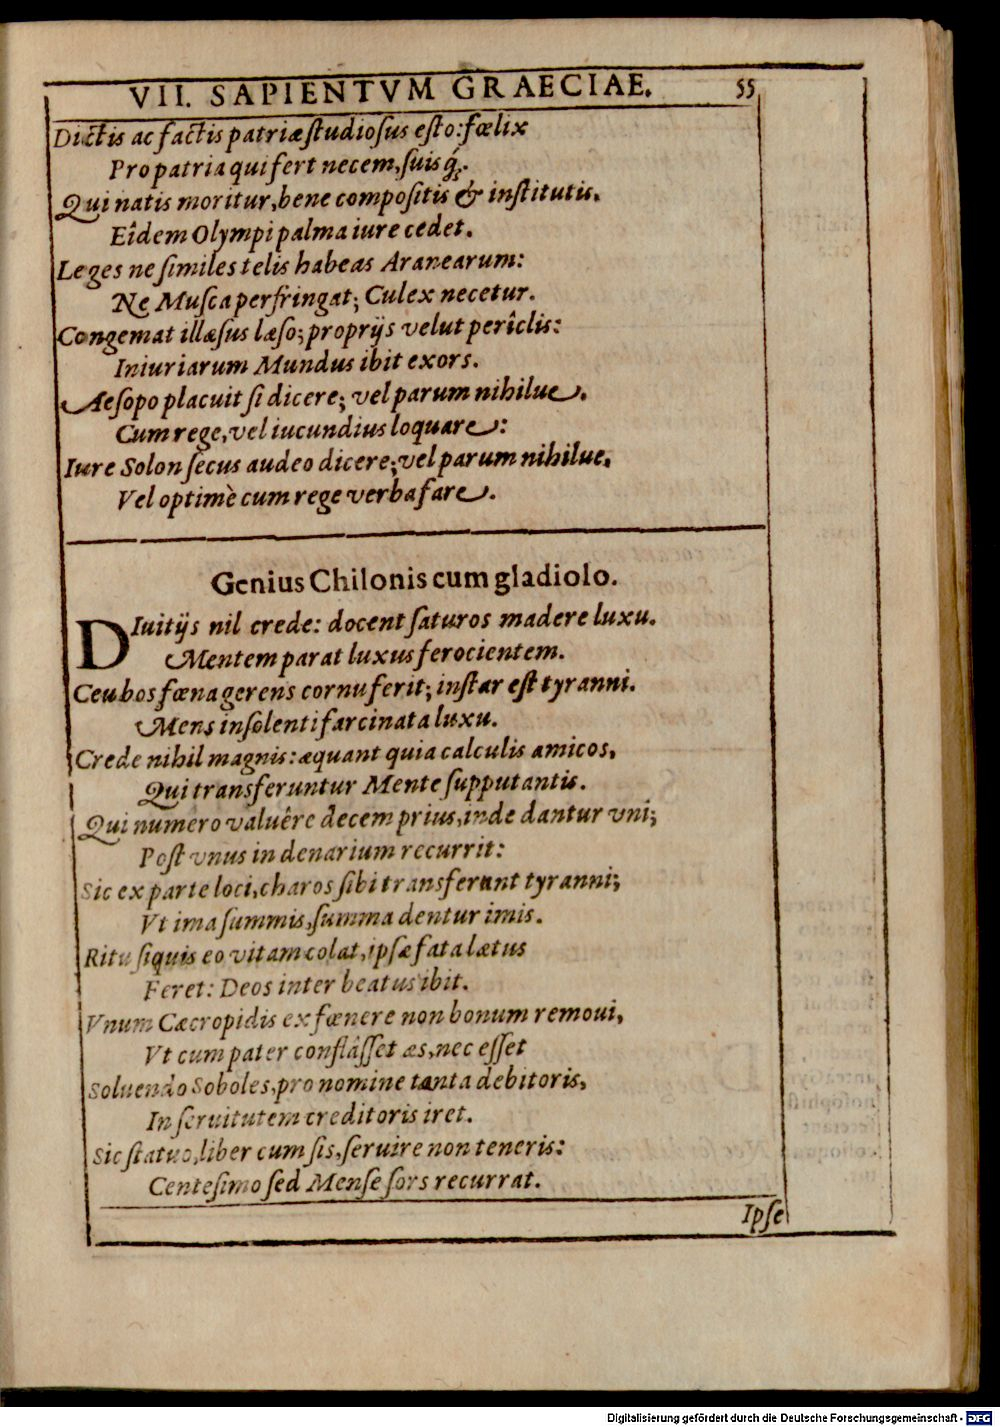 VII. SAPIENTVM GRAECIAE. 55
Dictis ac factis patriæ ſtudioſus eſto: fœlix
Pro patria qui fert necem, ſuisq́;.
Qui natis moritur, bene compoſitis & inſtitutis.
Eîdem Olympi palma iure cedet.
Leges ne ſimiles telis habeas Aranearum:
Ne Muſca perfringat; Culex necetur.
Congemat illæſus læſo; proprijs velut perîclis:
Iniuriarum Mundus ibit exors.
Aeſopo placuit ſi dicere; vel parum nihilue.
Cum rege, vel iucundius loquare:
Iure Solon ſecus audeo dicere; vel parum nihilue.
Vel optimè cum rege verba fare.
Genius Chilonis cum gladiolo.
DIuitijs nil crede: docent ſaturos madere luxu.
Mentem parat luxus ferocientem.
Ceu bos fœna gerens cornu ferit; inſtar eſt tyranni.
Mens inſolenti farcinata luxu.
Crede nihil magnis: æquant quia calculis amicos,
Qui transferuntur Mente ſupputantis.
Qui numero valuêre decem prius, inde dantur vni;
Poſt vnus in denarium recurrit:
Sic ex parte loci, charos ſibi transferunt tyranni;
Vt ima ſummis, ſumma dentur imis.
Ritu ſiquis eo vitam colat, ipſæ fata lætus
Feret: Deos inter beatus ibit.
Vnum Cæcropidis ex fœnere non bonum remoui,
Vt cum pater conflâſſet æs, nec eſſet
Soluendo Soboles, pro nomine tanta debitoris,
In ſeruitutem creditoris iret.
Sic ſtatuo, liber cum ſis, ſeruire non teneris:
Centeſimo ſed Menſe ſors recurrat.
Ipſe
Digitalisierung gefördert durch die Deutsche Forschungsgemeinschaft - DFG